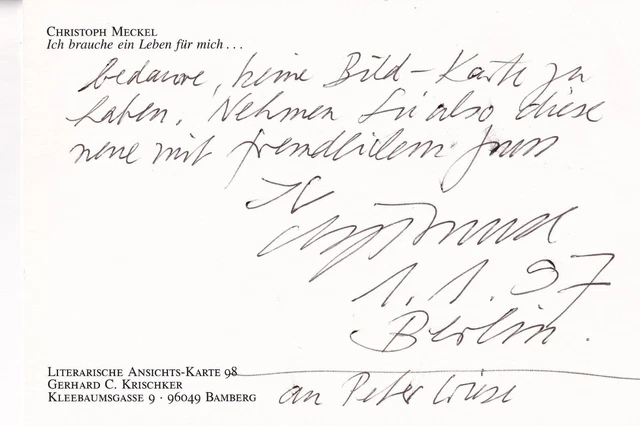 CHRISTOPH MECKEL
Ich brauche ein Leben für mich . . .
bedaure, keine Bild-Karte zu
haben. Nehmen Sie also diese
neue mit freundlichem Gruss
1. 1. 97
Berlin.
LITERARISCHE ANSICHTS-KARTE 98
GERHARD C. KRISCHKER
KLEEBAUMSGASSE 9 · 96049 BAMBERG
an Peter Wiese